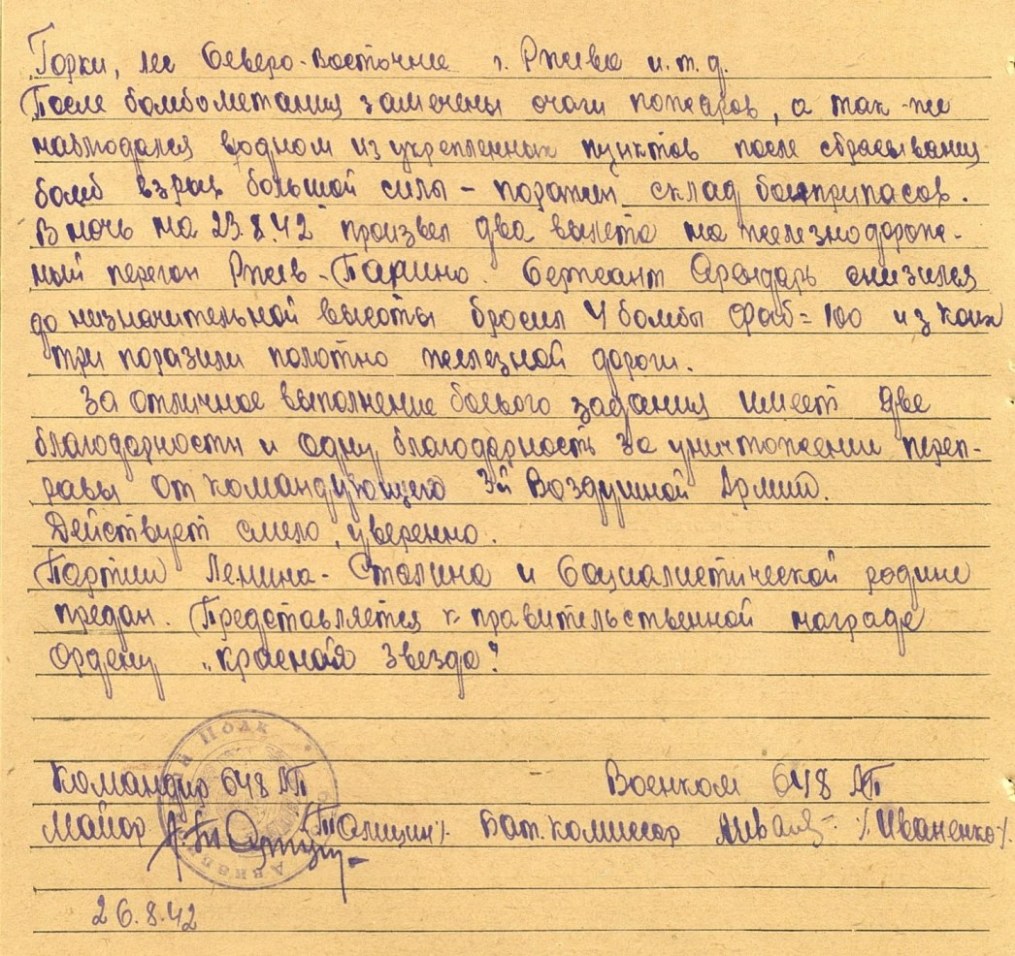 Горки, лес Северо-Восточнее г. Ржева и.т.д.
После бомбометания замечены очаги пожаров, а так-же
наблюдался водном из укрепленных пунктов после сбрасывания
бомб взрыв большой силы - поражен склад боеприпасов.
В ночь на 23.8.42 произвел два вылета на железнодорож-
ный перегон Ржев-Папино. Сержант Арендарь снизился
до незначительной высоты бросил 4 бомбы Фаб=100 из коих
три поразили полотно железной дороги.
За отличное выполнение боевого задания имеет две
благодарности и одну благодарность за уничтожении переп-
равы от командующего 3й Воздушной Армии.
Действует смело, уверенно.
Партии Ленина-Сталина и Социалистической родине
предан. Представляется к правительственной награде
ордену "красная звезда".
Командир 648 АП Военком 648 АП
Майор /Талицин/. Бат.комиссар /Иваненко/.
26.8.42